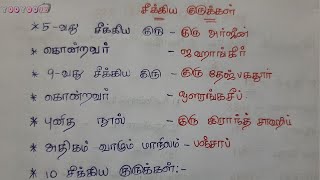 சீக்கிய குருக்கள்
* 5-வது சீக்கிய குரு - குரு அர்ஜுன்
* கொன்றவர் - ஜஹாங்கீர்
* 9-வது சீக்கிய குரு - குரு தேஜ்பகதூர்
* கொன்றவர் - ஔரங்கசீப்
* புனித நூல் - குரு கிரந்த் சாஹிப்
* அதிகம் வாழும் மாநிலம் - பஞ்சாப்
* 10 சீக்கிய குருக்கள்:-